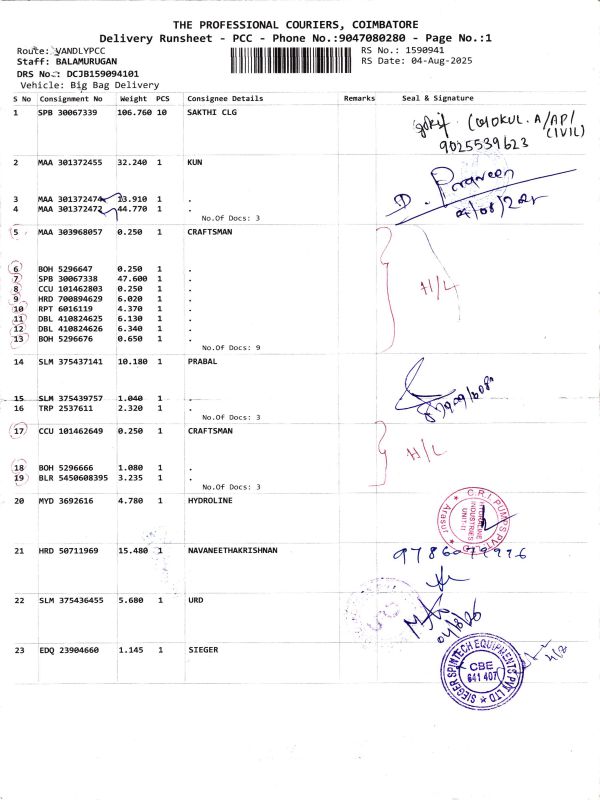 THE PROFESSIONAL COURIERS, COIMBATORE
Delivery Runsheet - PCC - Phone No.:9047080280 - Page No.:1
Route: VANDLYPCC
RS No.: 1590941
Staff: BALAMURUGAN
RS Date: 04-Aug-2025
DRS No.: DCJB159094101
Vehicle: Big Bag Delivery
S No Consignment No Weight PCS Consignee Details Remarks Seal & Signature
1 SPB 30067339 106.760 10 SAKTHI CLG
GOKUL. A/AP/
CIVIL)
9025539623
2 MAA 301372455 32.240 1 KUN
D. Praveen
3 MAA 301372474 13.910 1 .
4 MAA 301372472 44.770 1 .
No.Of Docs: 3
5 MAA 303968057 0.250 1 CRAFTSMAN
6 BOH 5296647 0.250 1 .
7 SPB 30067338 47.600 1 .
8 CCU 101462803 0.250 1 .
H/L
9 HRD 700894629 6.020 1 .
10 RPT 6016119 4.370 1 .
11 DBL 410824625 6.130 1 .
12 DBL 410824626 6.340 1 .
13 BOH 5296676 0.650 1 .
No.Of Docs: 9
14 SLM 375437141 10.180 1 PRABAL
15 SLM 375439757 1.040 1 .
16 TRP 2537611 2.320 1 .
No.Of Docs: 3
17 CCU 101462649 0.250 1 CRAFTSMAN
H/L
18 BOH 5296666 1.080 1 .
19 BLR 5450608395 3.235 1 .
No.Of Docs: 3
20 MYD 3692616 4.780 1 HYDROLINE
C.R.I. PUMPS PVT LTD
HYDROLINE
INDUSTRIES
UNIT-II
Arasur
21 HRD 50711969 15.480 1 NAVANEETHAKRISHNAN
22 SLM 375436455 5.680 1 URD
23 EDQ 23904660 1.145 1 SIEGER
SIEGER SPINTECH EQUIPMENTS PVT LTD
CBE
641 407